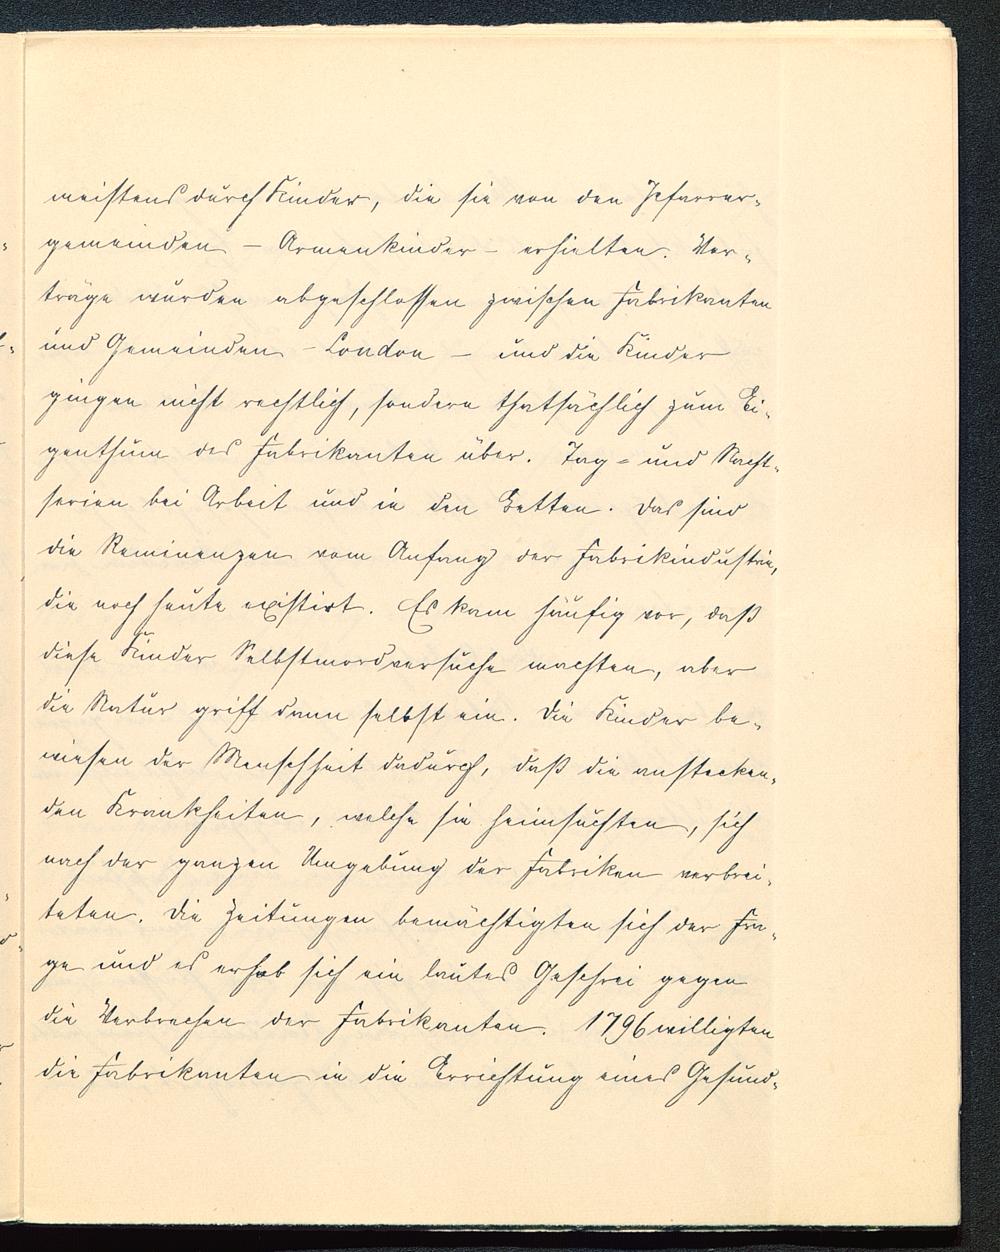 meistens durch Kinder, die sie von den Pfarrer-
gemeinden – Armenkinder – erhielten. Ver-
träge wurden abgeschlossen zwischen Fabrikanten
und Gemeinden – London – und die Kinder
gingen nicht rechtlich, sondern thatsächlich zum Ei-
genthum des Fabrikanten über. Tag- und Nacht-
serien bei Arbeit und in den Betten. Das sind
die Reminenzen vom Anfang der Fabrikindustrie,
die noch heute existirt. Es kam häufig vor, daß
diese Kinder Selbstmordversuche machten, aber
die Natur griff dann selbst ein. Die Kinder be-
wiesen der Menschheit dadurch, daß die anstecken-
den Krankheiten, welche sie heimsuchten, sich
nach der ganzen Umgebung der Fabriken verbrei-
teten. Die Zeitungen bemächtigten sich der Fra-
ge und es erhob sich ein lautes Geschrei gegen
die Verbrechen der Fabrikanten. 1796 willigten
die Fabrikanten in die Errichtung eines Gesund-